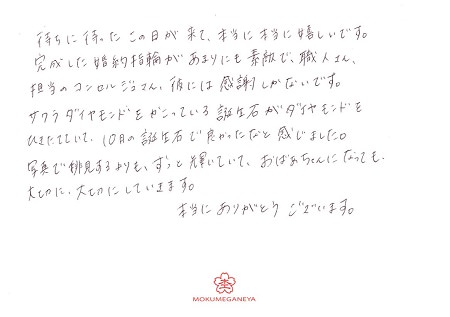 待ちに待ったこの日が来て、本当に本当に嬉しいです。
完成した婚約指輪があまりにも素敵で、職人さん、
担当のコンシェルジュさん、彼には感謝しかないです。
サクラダイヤモンドをかこっている誕生石がダイヤモンドを
ひきたてていて、10月の誕生石で良かったなと感じました。
写真で拝見するよりも、ずっと輝いていて、おばあちゃんになっても、
大切に、大切にしていきます。
本当にありがとうございます。
MOKUMEGANEYA